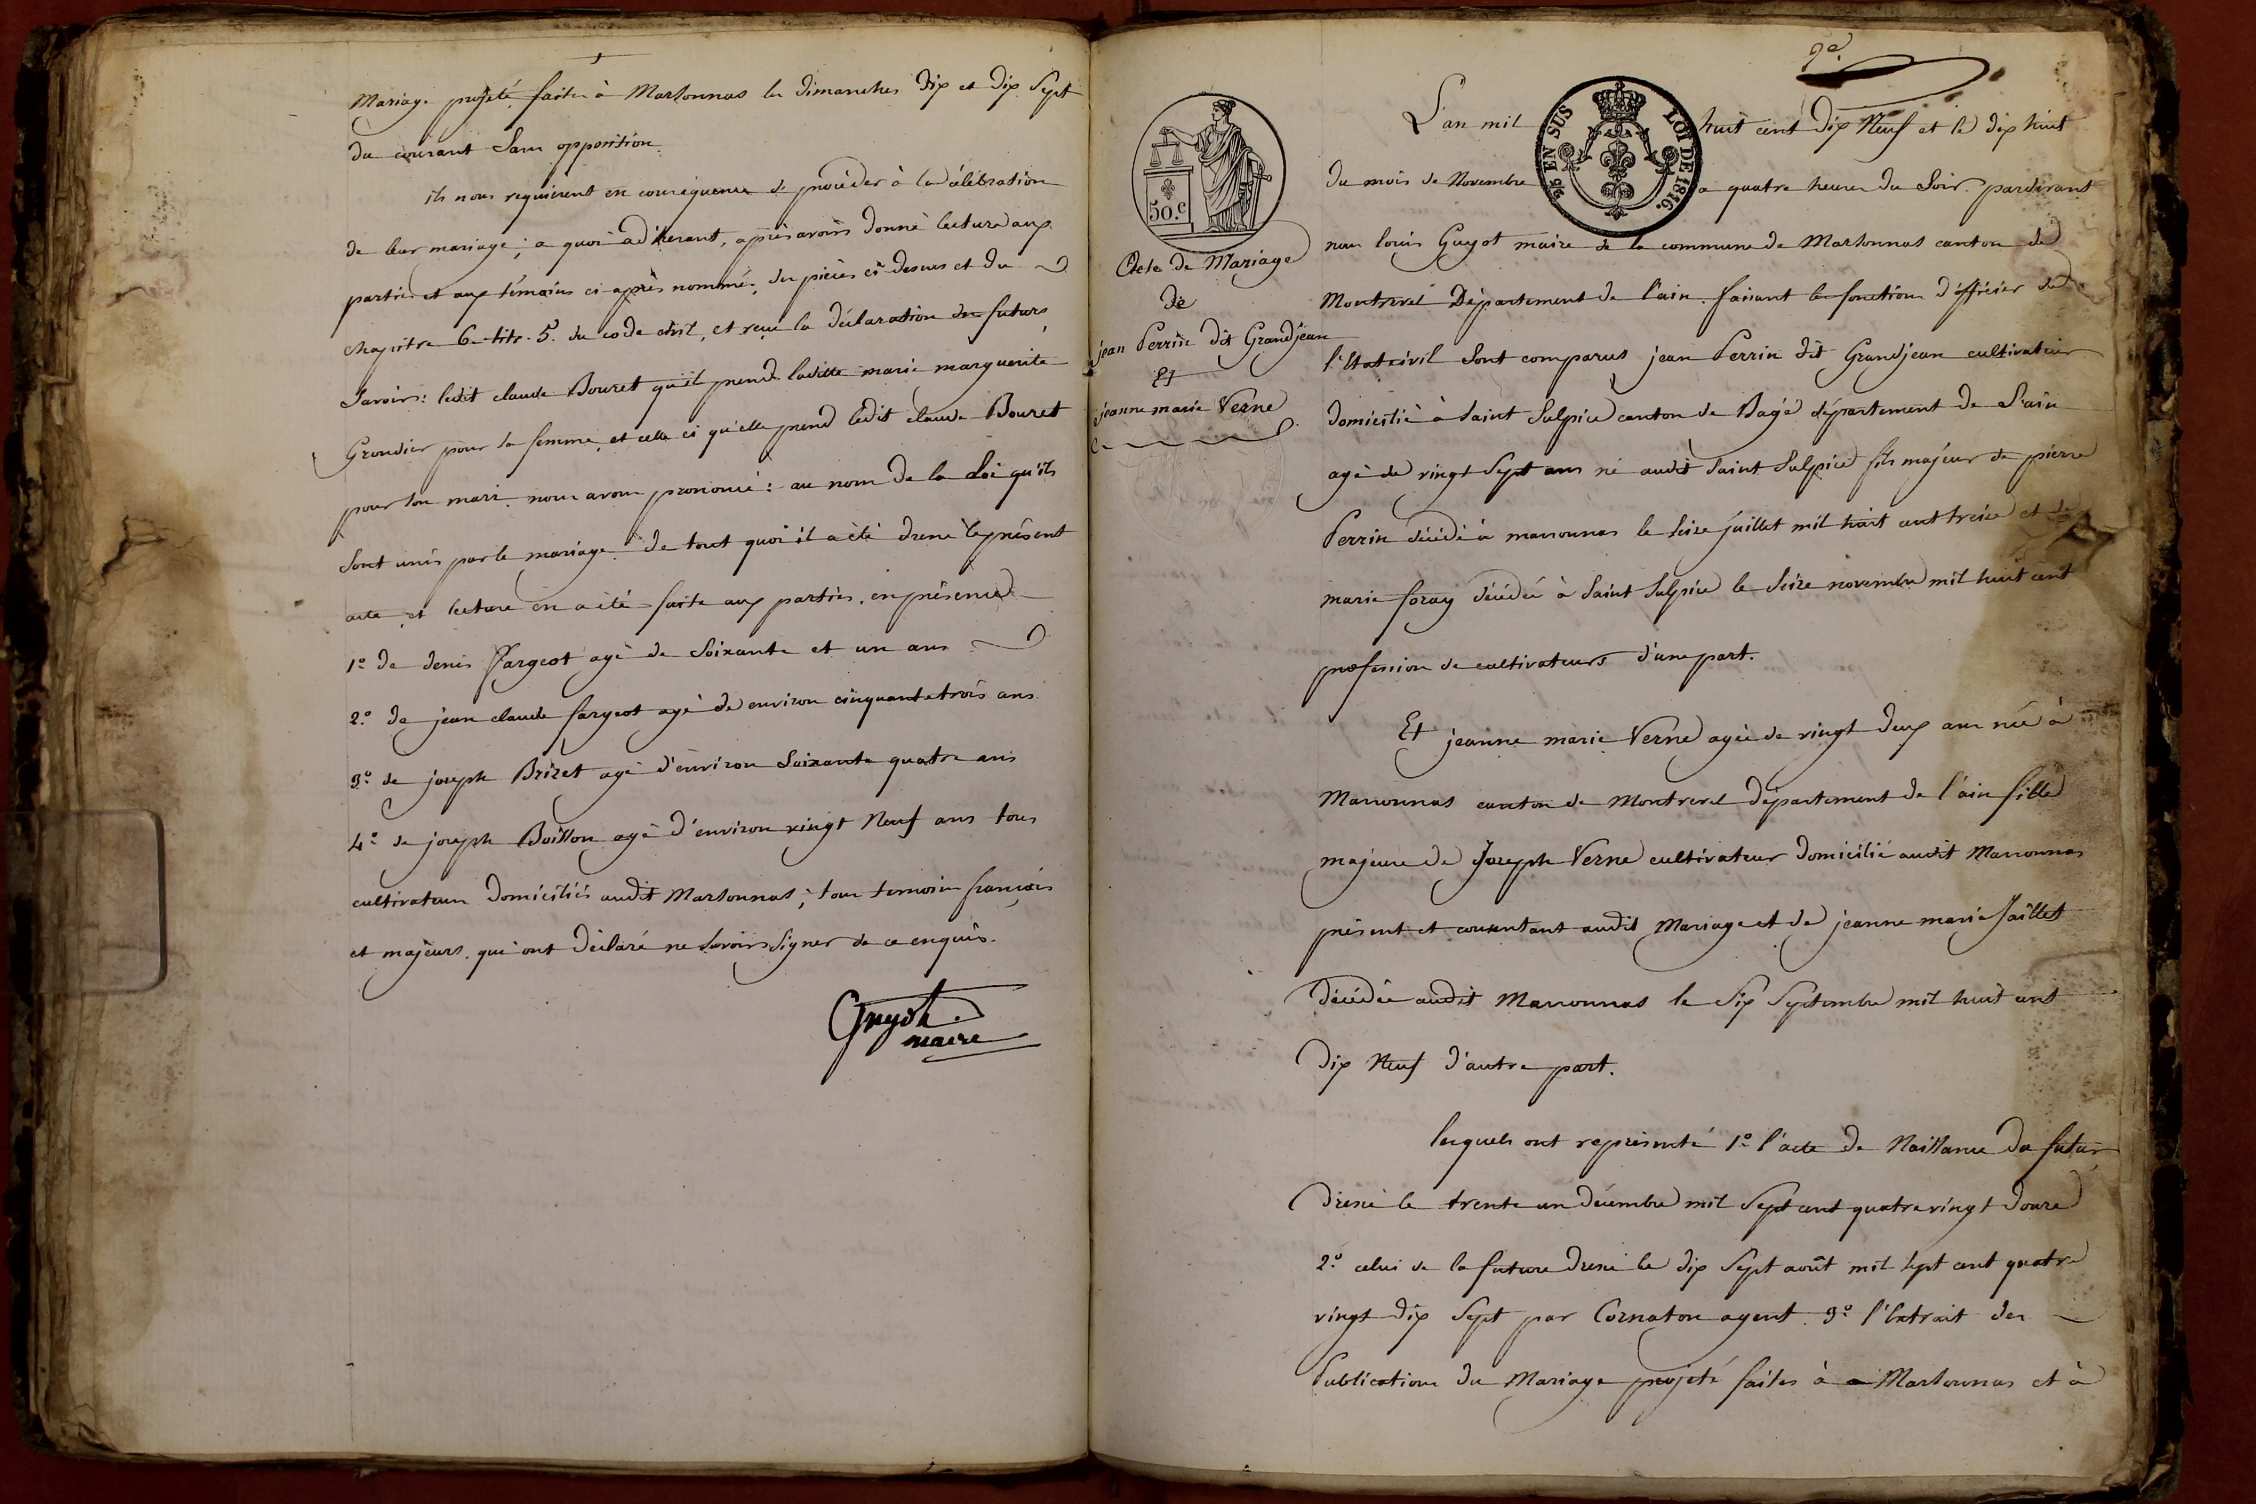 Mariage projeté faites à Marsonnas les dimanches dix et dix sept
du courant Sans opposition.
ils nous requierent en conséquence de procéder à la célébration
de leur mariage; a quoi adhérant, après avoirs donné lecture aux
parties et aux témoins ci après nommés, des pièces ci dessus et du
chapitre 6 titr. 5. du code civil, et reçu la déclaration des futurs
Savoirs: ledit claude Bouret qu'il prend ladite marie marguerite
Grondier pour sa femme, et celle ci qu'elle prend ledit claude Bouret
pour son mari. nous avons prononcé: au nom de la Loi qu'ils
Sont unis par le mariage. de tout quoi il a été dressé le présent
acte, et lecture en a été faite aux parties, en présence
1.° de denis Fargeot agé de Soixante et un ans
2.° de jean claude fargeot agé de environ cinquante trois ans
3.° de joseph Brizet agé d'environ Soixante quatre ans
4.° de joseph Boisson agé d'environ vingt Neuf ans tous
cultivateurs domiciliés audit Marsonnas; tous temoins français
et majeurs, qui ont déclaré ne Savoirs Signer de ce enquis.
Guyot
maire
9.e
50.c
25 EN SUS
LOI DE 1816.
Acte de Mariage
de
jean Perrin dit Grandjean
Et
jeanne marie Verne
L'an mil huit cent dix Neuf et le dix huit
du mois de Novembre a quatre heures du Soir. pardevant
nous louis Guyot maire de la commune de Marsonnas canton de
Montrevel Département de l'ain. faisant les fonctions d'officier de
l'Etat civil Sont comparus jean Perrin dit Grandjean cultivateur
domicilié à Saint Sulpice canton de Bagé département de L'ain
agé de vingt Sept ans né audit Saint Sulpice fils majeur de pierre
Perrin décédé à marsonnas le Seize juillet mil huit cent treize et de
marie foray décédée à Saint Sulpice le Seize novembre mil huit cent
profession de cultivateurs d'une part.
Et jeanne marie Verne agée de vingt deux ans née à
Marsonnas canton de Montrevel département de l'ain fille
majeure de Joseph Verne cultivateur domicilié audit Marsonnas
présent et consentant audit Mariage et de jeanne marie Jaillet
décédée audit Marsonnas le Six Septembre mil huit cent
dix Neuf d'autre part.
lesquels ont représenté 1.° l'acte de Naissance du futur
dressé le trente un décembre mil Sept cent quatre vingt douze
2.° celui de la future dressé le dix Sept août mil sept cent quatre
vingt dix Sept par Cornaton agent. 3.° l'Extrait des
Publications du Mariage projeté faites à a Marsonnas et à